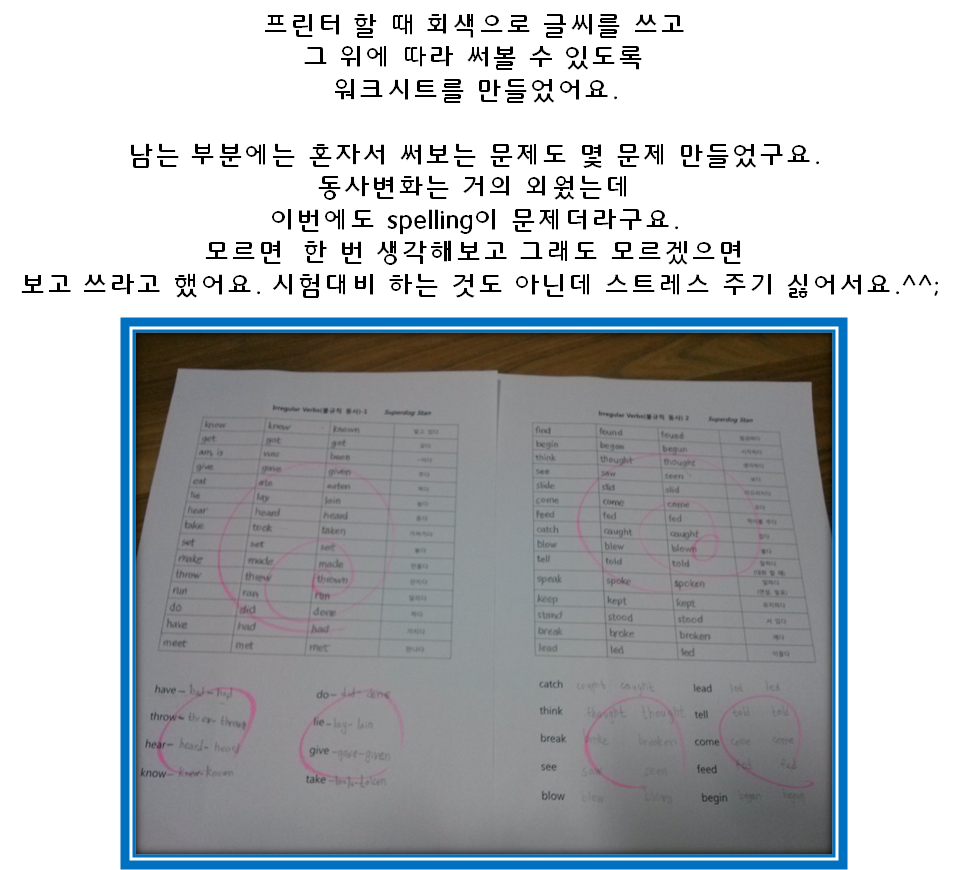 프린터 할 때 회색으로 글씨를 쓰고
그 위에 따라 써볼 수 있도록
워크시트를 만들었어요.
남는 부분에는 혼자서 써보는 문제도 몇 문제 만들었구요.
동사변화는 거의 외웠는데
이번에도 spelling이 문제더라구요.
모르면 한 번 생각해보고 그래도 모르겠으면
보고 쓰라고 했어요. 시험대비 하는 것도 아닌데 스트레스 주기 싫어서요.^^;
Irregular Verbs(불규칙 동사)-1 Superdog Stan
know knew known 알고 있다
get got got
am, is was
give gave given
eat ate eaten
lie lay lain
hear heard heard
take took taken
set set set
make made made 만들다
throw threw thrown 던지다
run ran run 달리다
do did done 하다
have had had 가지다
meet met met 만나다
have – had – had
throw –
hear – heard – heard
know –
do – did – done
lie – lay – lain
give – gave – given
take – took – taken
Irregular Verbs(불규칙 동사) 2 Superdog Stan
find found found 발견하다
begin began begun 시작하다
think thought thought 생각하다
see saw seen 보다
slide slid slid
come come 오다
feed fed fed 먹이를 주다
catch caught caught 잡다
blow blew blown 불다
tell told told 말하다
speak spoke spoken 말하다
keep kept kept 유지하다
stand stood stood 서 있다
break broke broken 깨다
lead led led 이끌다
catch caught caught
think thought thought
break broke broken
see saw seen
blow blew blown
lead led led
tell told told
come come
feed fed fed
begin began begun